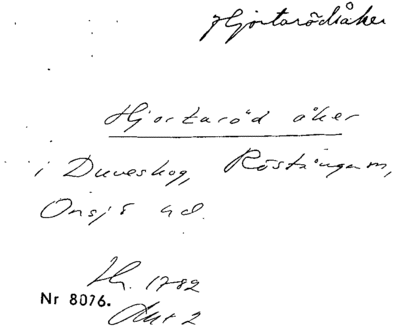 Hjortarödsåker
Hjortaröd åker
i Duveskog, Röstånga sn,
Onsjö hd.
Hr. 1782
Nr 8076.
Akt 2